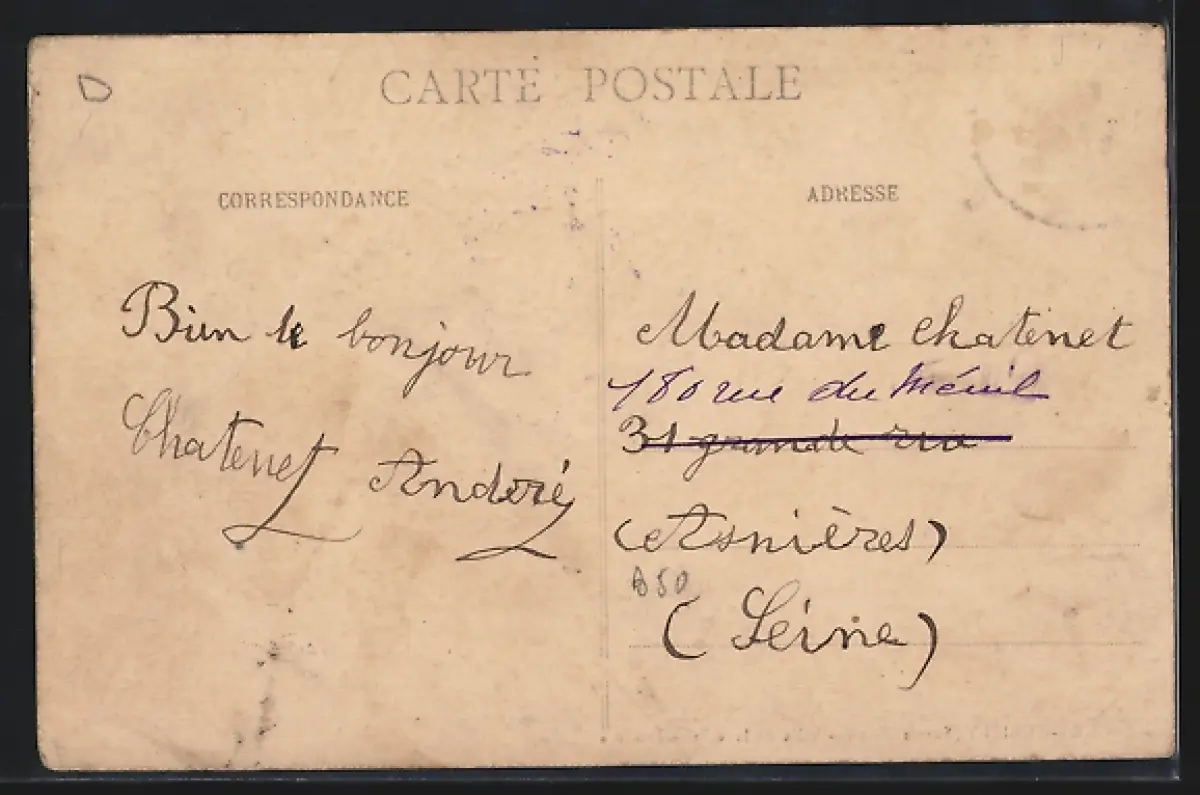 CARTE POSTALE
CORRESPONDANCE
ADRESSE
Bien le bonjour
Chatenet André
Madame Chatenet
180 rue du Ménil
31 grande rue
(Asnières)
(Seine)